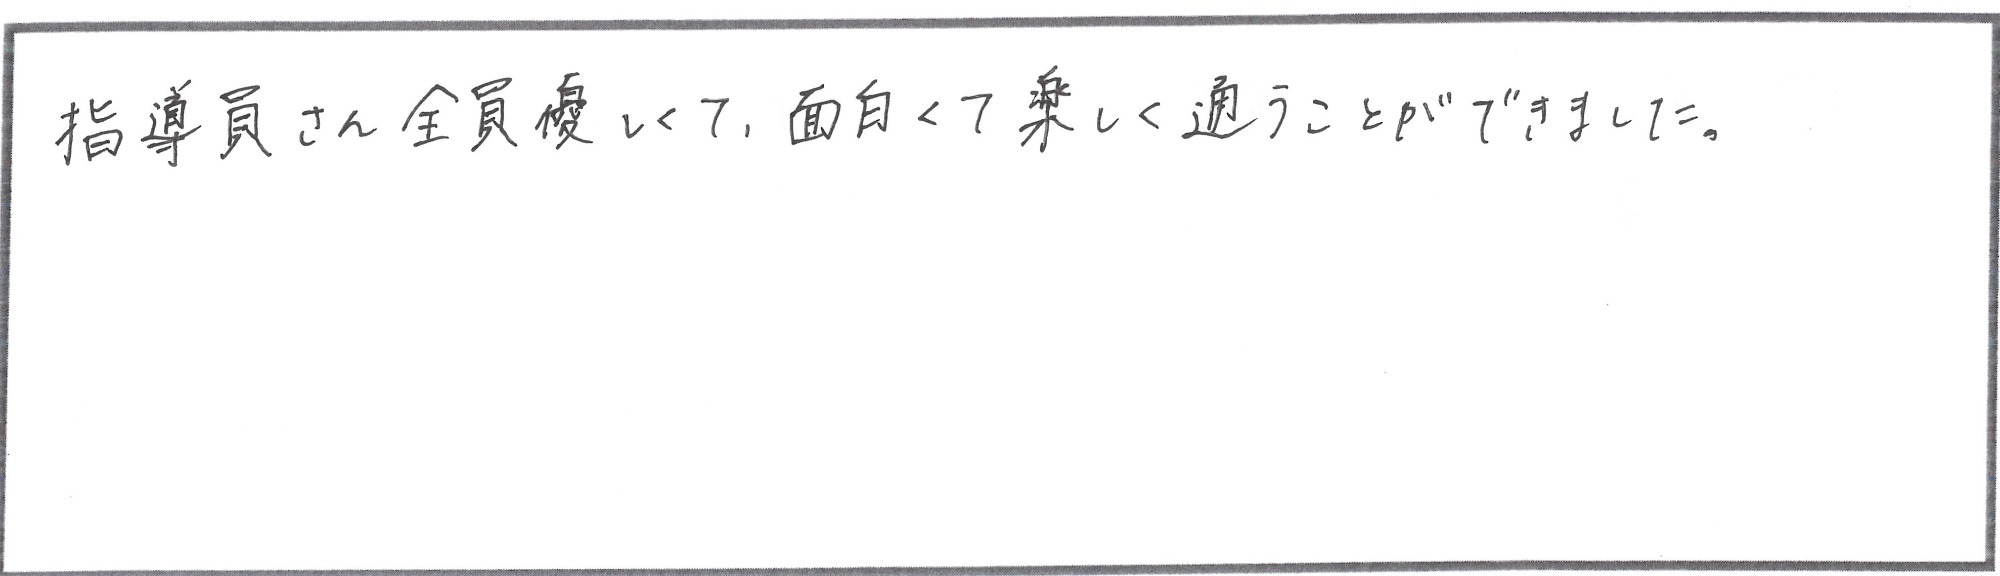 指導員さん全員優しくて、面白くて楽しく通うことができました。